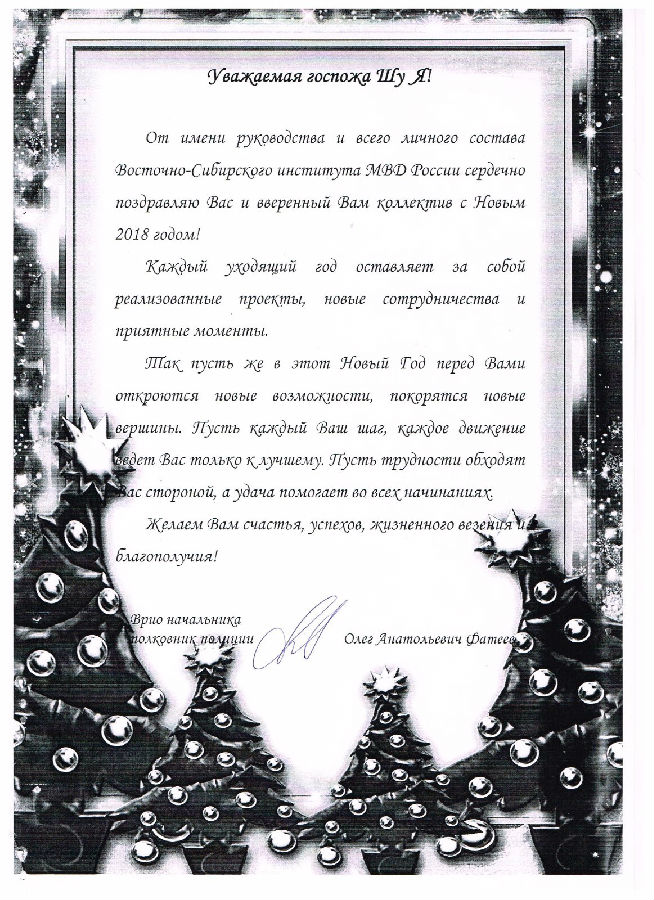 Уважаемая госпожа Шу Я!
От имени руководства и всего личного состава
Восточно-Сибирского института МВД России сердечно
поздравляю Вас и вверенный Вам коллектив с Новым
2018 годом!
Каждый уходящий год оставляет за собой
реализованные проекты, новые сотрудничества и
приятные моменты.
Так пусть же в этот Новый Год перед Вами
откроются новые возможности, покорятся новые
вершины. Пусть каждый Ваш шаг, каждое движение
ведет Вас только к лучшему. Пусть трудности обходят
Вас стороной, а удача помогает во всех начинаниях.
Желаем Вам счастья, успехов, жизненного везения и
благополучия!
Врио начальника
полковник полиции Олег Анатольевич Фатеев